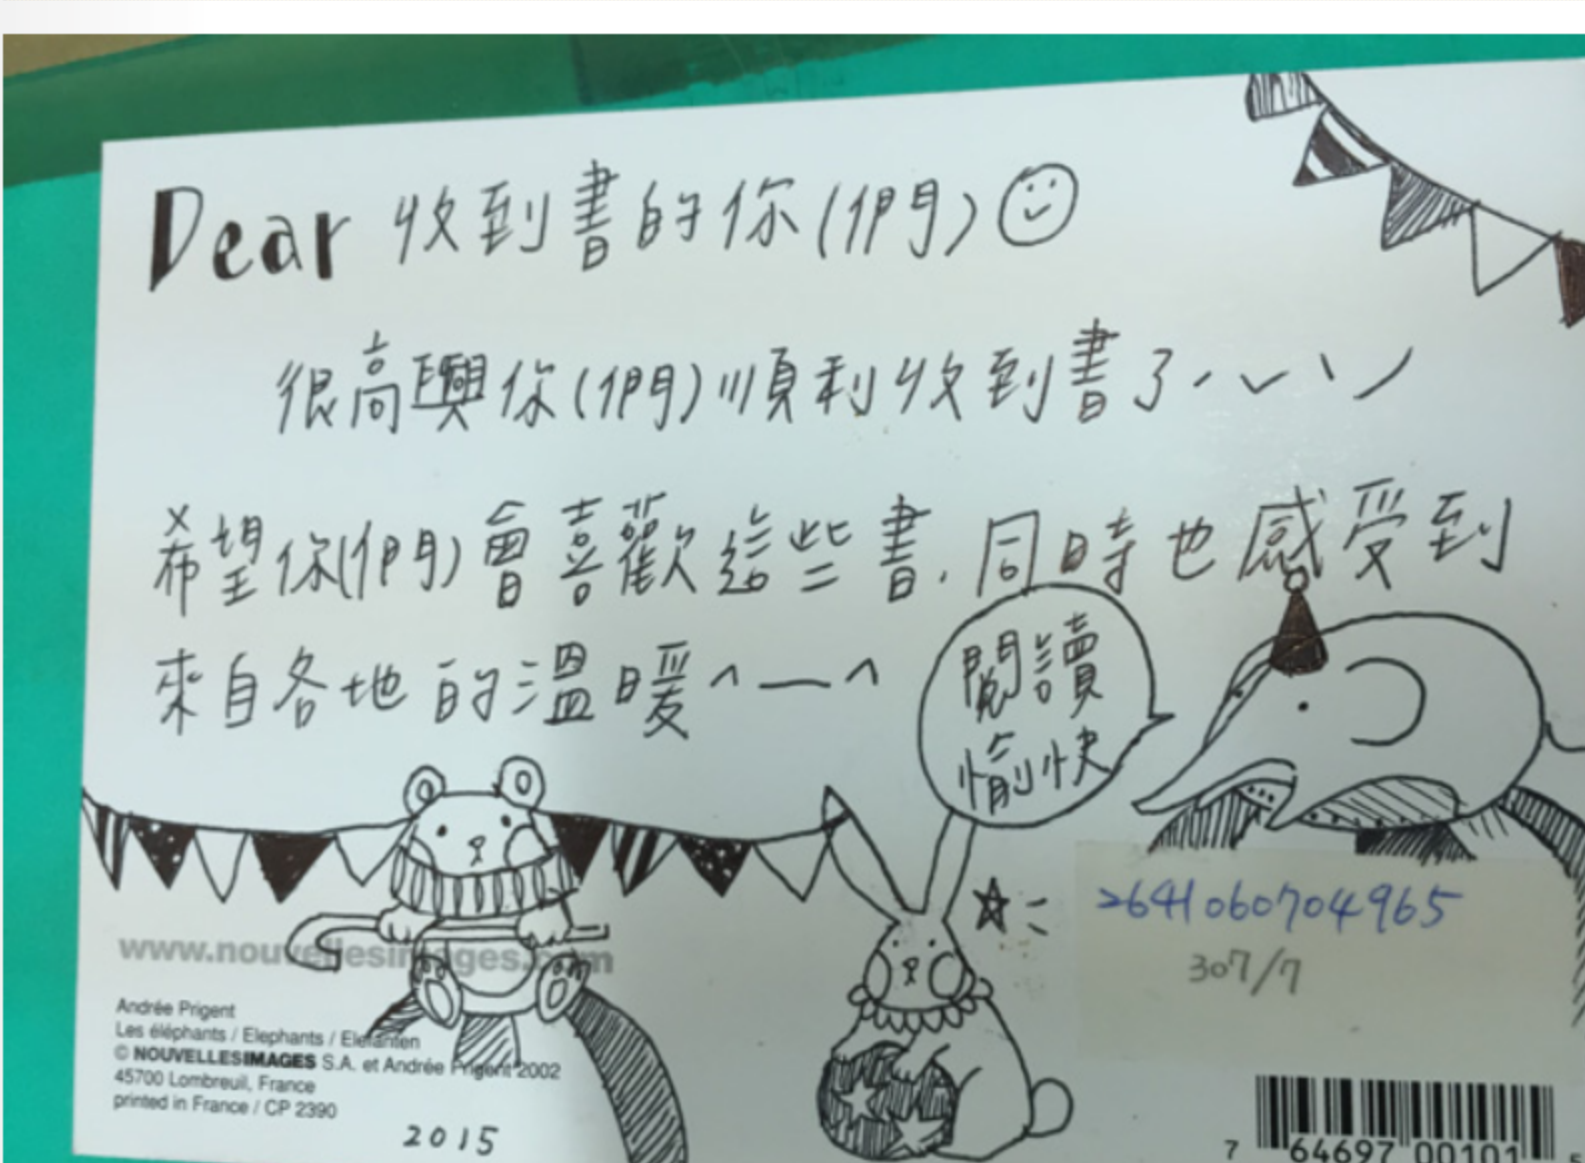 Dear 收到書的你(們)
很高興你(們)順利收到書了
希望你(們)會喜歡這些書,同時也感受到
來自各地的溫暖^__^
閱讀
愉快
www.nouvellesimages.com
Andrée Prigent
Les éléphants / Elephants / Elefanten
© NOUVELLESIMAGES S.A. et Andrée Prigent 2002
45700 Lombreuil, France
printed in France / CP 2390
2015
26410607704965
307/7
7 64697 00101